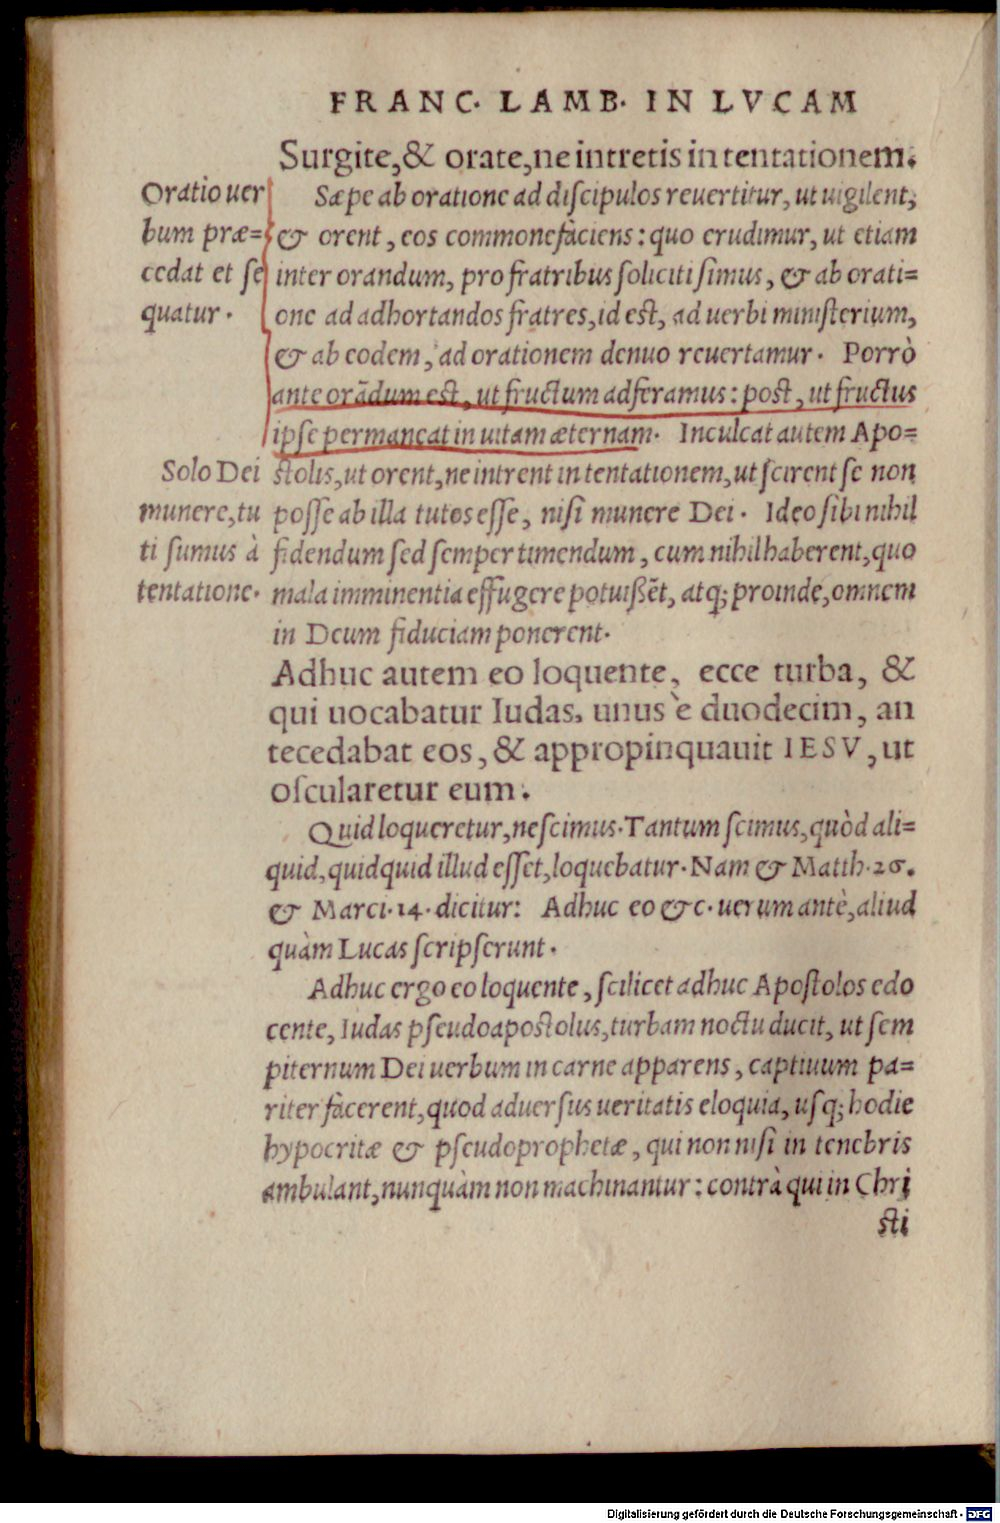 FRANC. LAMB. IN LVCAM
Surgite, & orate, ne intretis in tentationem.
Oratio uer
bum præ=
cedat et se
quatur.
Sæpe ab oratione ad discipulos reuertitur, ut uigilent,
& orent, eos commonefaciens: quo erudimur, ut etiam
inter orandum, pro fratribus soliciti simus, & ab orati=
one ad adhortandos fratres, id est, ad uerbi ministerium,
& ab eodem, ad orationem denuo reuertamur. Porrò
ante orādum est, ut fructum adferamus: post, ut fructus
ipse permaneat in uitam æternam. Inculcat autem Apo=
Solo Dei
munere, tu
ti sumus à
tentatione.
stolis, ut orent, ne intrent in tentationem, ut scirent se non
posse ab illa tutos esse, nisi munere Dei. Ideo sibi nihil
fidendum sed semper timendum, cum nihil haberent, quo
mala imminentia effugere potuißēt, atq; proinde, omnem
in Deum fiduciam ponerent.
Adhuc autem eo loquente, ecce turba, &
qui uocabatur Iudas, unus è duodecim, an
tecedabat eos, & appropinquauit IESV, ut
oscularetur eum.
Quid loqueretur, nescimus. Tantum scimus, quòd ali=
quid, quidquid illud esset, loquebatur. Nam & Matth. 26.
& Marci. 14. dicitur: Adhuc eo &c. uerum antè, aliud
quàm Lucas scripserunt.
Adhuc ergo eo loquente, scilicet adhuc Apostolos edo
cente, Iudas pseudoapostolus, turbam noctu ducit, ut sem
piternum Dei uerbum in carne apparens, captiuum pa=
riter facerent, quod aduersus ueritatis eloquia, usq; hodie
hypocritæ & pseudoprophetæ, qui non nisi in tenebris
ambulant, nunquàm non machinantur: contrà qui in Chri
sti
Digitalisierung gefördert durch die Deutsche Forschungsgemeinschaft - DFG